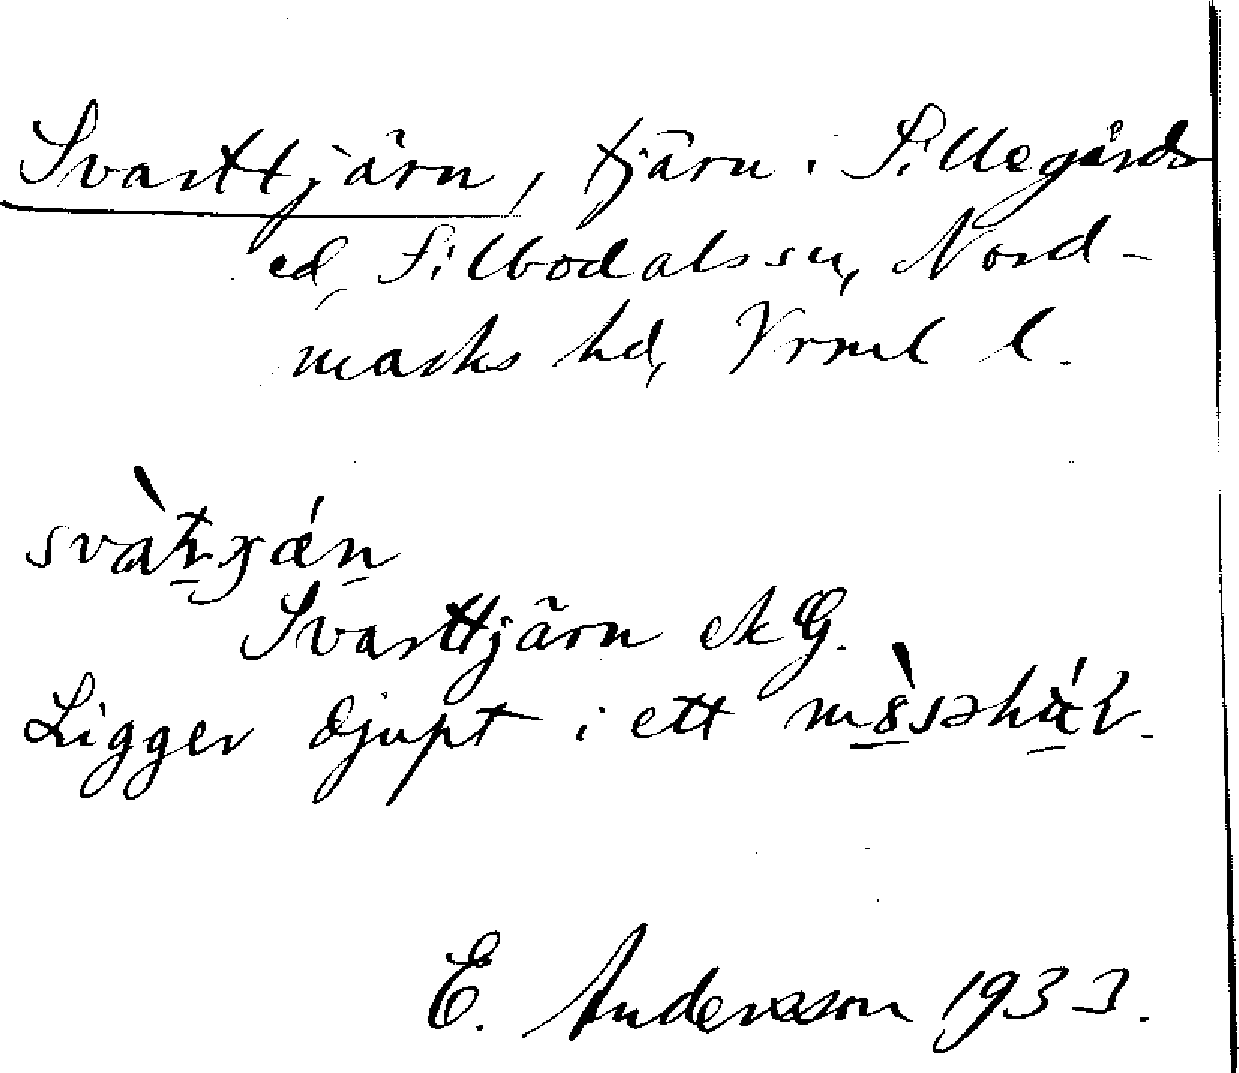 Svarttjärn, tjärn i Sillegårds
ed, Silbodals sn, Nord-
marks hd, Vrml l.
Svarttjärn ek G.
Ligger djupt i ett
E. Andersson 1933.